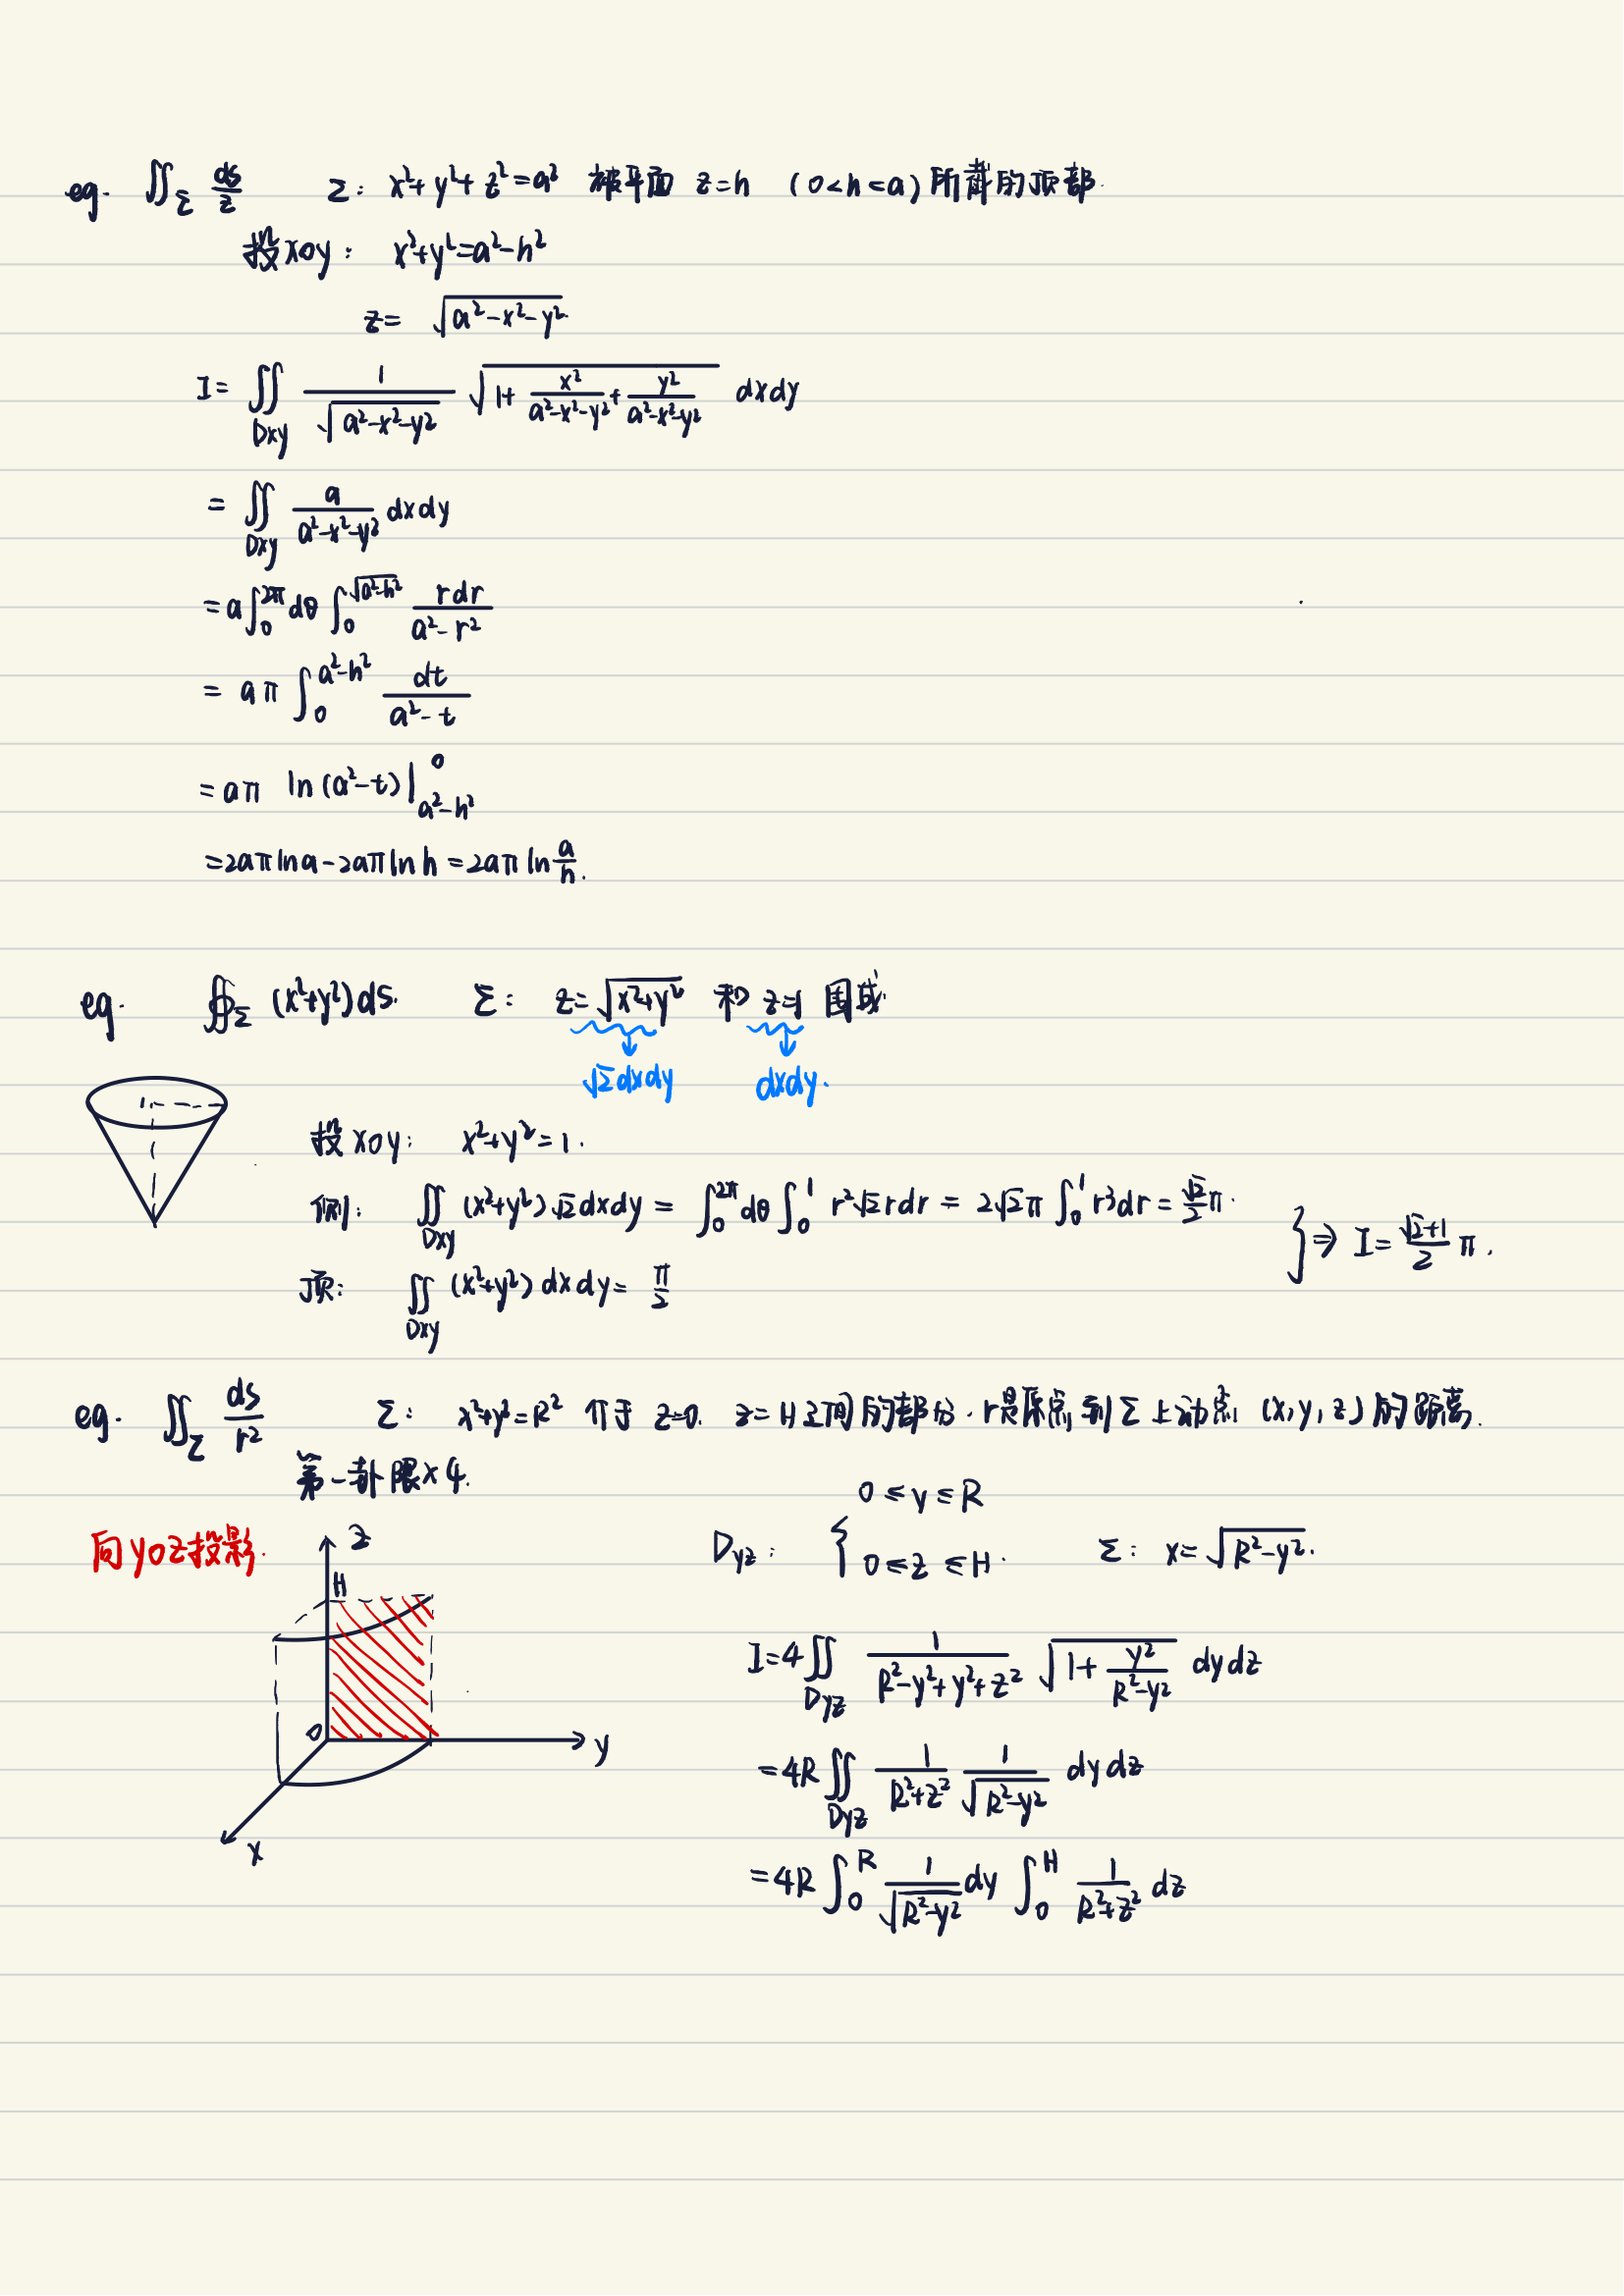 eg. ∬_Σ ds/z Σ: x²+y²+z²=a² 被平面 z=h (0<h<a) 所截的顶部.
投xoy: x²+y²=a²-h²
z= √(a²-x²-y²)
I= ∬_Dxy 1/√(a²-x²-y²) √(1+ x²/(a²-x²-y²) + y²/(a²-x²-y²)) dxdy
= ∬_Dxy a/(a²-x²-y²) dxdy
=a∫_0^2π dθ ∫_0^√(a²-h²) rdr/(a²-r²)
= aπ ∫_0^(a²-h²) dt/(a²-t)
=aπ ln(a²-t)|_(a²-h²)^0
=2aπlna-2aπlnh=2aπln a/h.
eg. ∯_Σ (x²+y²)ds. Σ: z=√(x²+y²) 和 z=1 围成.
√2dxdy dxdy.
1
投xoy: x²+y²=1.
侧: ∬_Dxy (x²+y²)√2dxdy = ∫_0^2π dθ∫_0^1 r²√2rdr = 2√2π ∫_0^1 r³dr = √2/2 π.
}⇒ I= (√2+1)/2 π.
顶: ∬_Dxy (x²+y²)dxdy= π/2
eg. ∬_Σ ds/r² Σ: x²+y²=R² 介于 z=0. z=H之间的部份. r是原点到Σ上动点 (x,y,z)的距离.
第一卦限×4.
向yoz投影.
D_yz: { 0≤y≤R
0≤z≤H. Σ: x=√(R²-y²).
z
H
o
y
x
I=4∬_Dyz 1/(R²-y²+y²+z²) √(1+ y²/(R²-y²)) dydz
=4R∬_Dyz 1/(R²+z²) 1/√(R²-y²) dydz
=4R∫_0^R 1/√(R²-y²) dy ∫_0^H 1/(R²+z²) dz